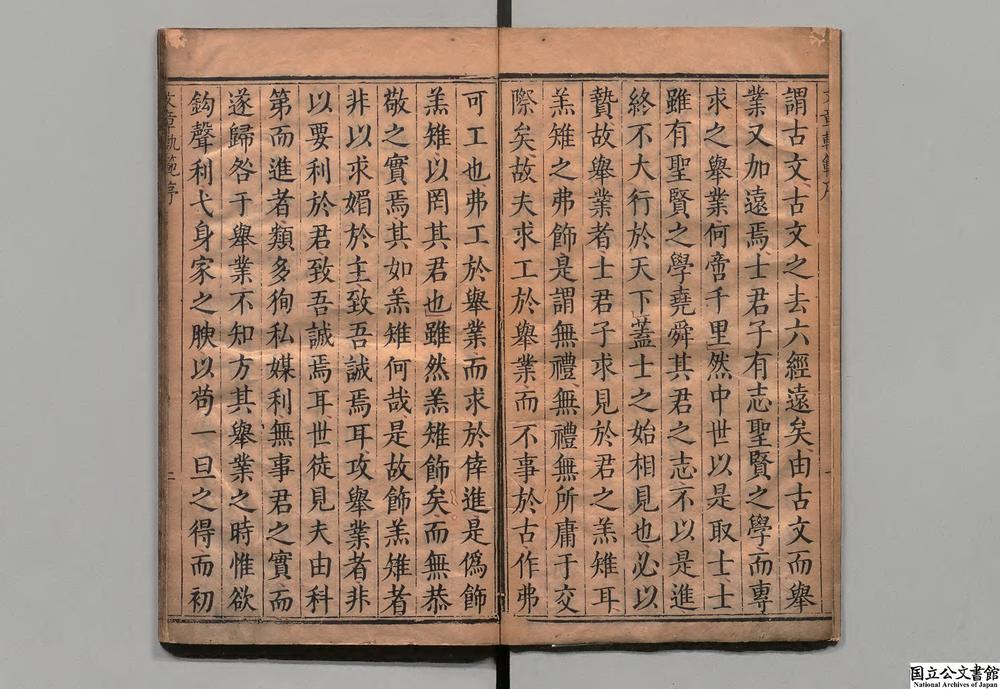 文章軌範序
一
謂古文古文之去六經遠矣由古文而舉
業又加遠焉士君子有志聖賢之學而專
求之舉業何啻千里然中世以是取士士
雖有聖賢之學堯舜其君之志不以是進
終不大行於天下蓋士之始相見也必以
贄故舉業者士君子求見於君之羔雉耳
羔雉之弗飾是謂無禮無禮無所庸于交
際矣故夫求工於舉業而不事於古作弗
可工也弗工於舉業而求於倖進是僞飾
羔雉以罔其君也雖然羔雉飾矣而無恭
敬之實焉其如羔雉何哉是故飾羔雉者
非以求媚於主致吾誠焉耳攻舉業者非
以要利於君致吾誠焉耳世徒見夫由科
第而進者類多徇私媒利無事君之實而
遂歸咎于舉業不知方其舉業之時惟欲
鈎聲利弋身家之腴以苟一旦之得而初
文章軌範序
二
国立公文書館
National Archives of Japan